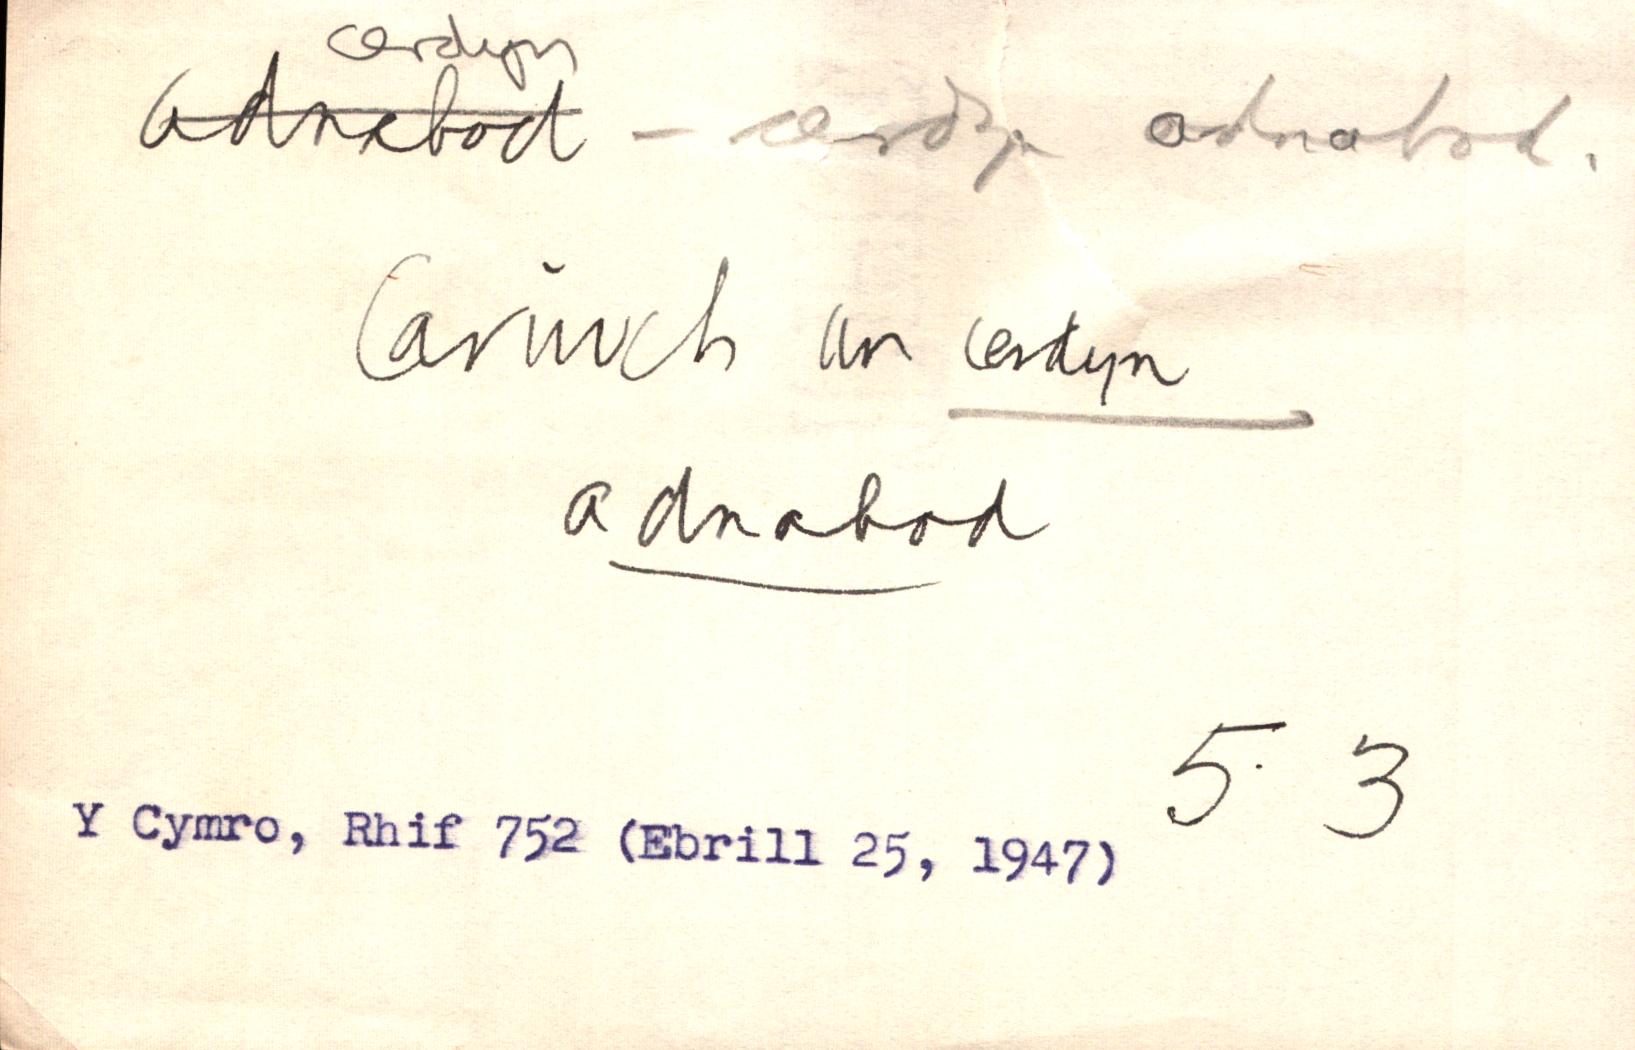 cerdyn
adnabod - cerdyn adnabod.
Cariwch un cerdyn
adnabod
5. 3
Y Cymro, Rhif 752 (Ebrill 25, 1947)